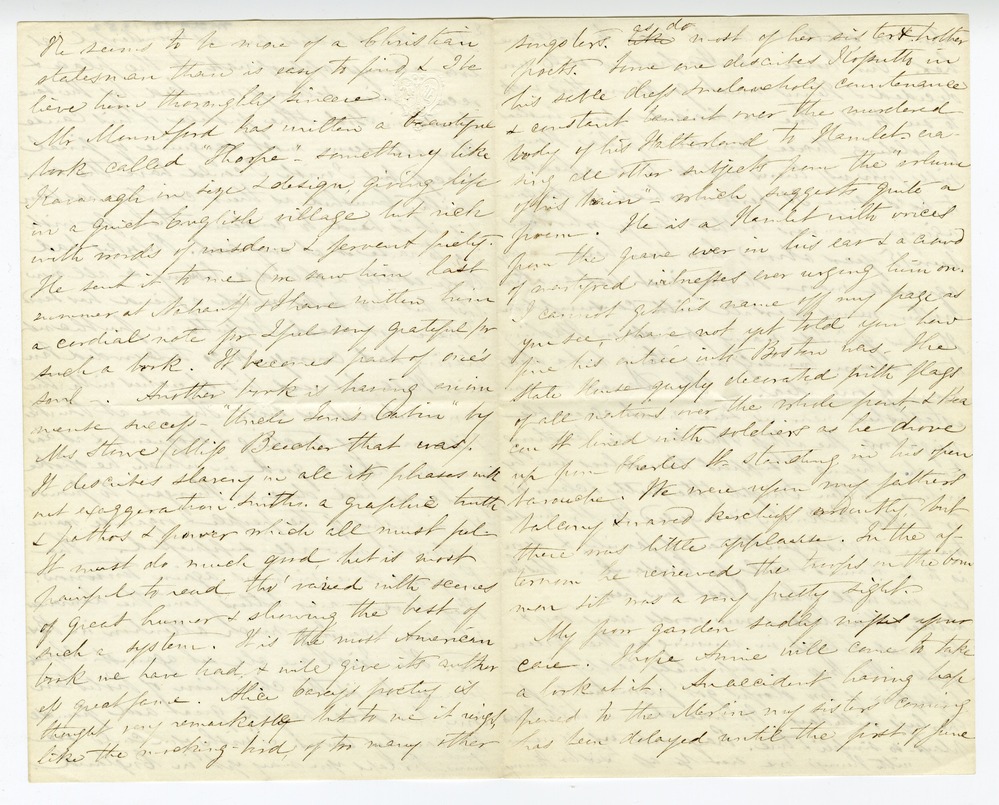 He seems to be more of a Christian
statesman than is easy to find, & I be
lieve him thoroughly sincere.
Mr Mountford has written a beautiful
book called "Thorpe" - something like
Kavanagh in size & design giving life
in a quiet English village but rich
with words of wisdom & fervent piety.
He sent it to me (we saw him last
summer at Nahant) & I have written him
a cordial note for I feel very grateful for
such a book. "It becomes part of one's
soul". Another book is having an im
mense success - "Uncle Toms Cabin" by
Mrs Stowe (Miss Beecher that was).
It describes slavery in all its phases with
out exaggeration & with a graphic truth
& pathos & power which all must feel.
It must do much good but is most
painful to read, tho' varied with scenes
of great humor & showing the best of
such a system. It is the most American
book we have had, & will give its author
great fame. Alice Carey's poetry is
thought very remarkable but to me it rings,
like the mocking-bird, of too many other
songsters. like as do most of her sister & brother
poets. Some one describes Kossuth in
his sable dress & melancholy countenance
& constant lament over the murdered
body of his Fatherland to Hamlet era-
sing all other subjects from the "volume
of his brain" - which suggests quite a
poem. He is a Hamlet with voices
from the grave ever in his ear & a crowd
of martyred witnesses ever urging him on.
I cannot get his name off my page as
you see, & have not yet told you how
fine his entree into Boston was. The
State House gayly decorated with flags
of all nations over the whole front & Bea
con St lined with soldiers as he drove
up from Charles St standing in his open
barouche. We were upon my father's
balcony & waved kerchiefs ardently, but
there was little applause. In the af-
ternoon he reviewed the troops on the Com
mon & it was a very pretty sight.
My poor garden sadly misses your
care. I hope Annie will come to take
a look at it. An accident having hap
pened to the Merlin my sisters' coming
has been delayed until the first of June